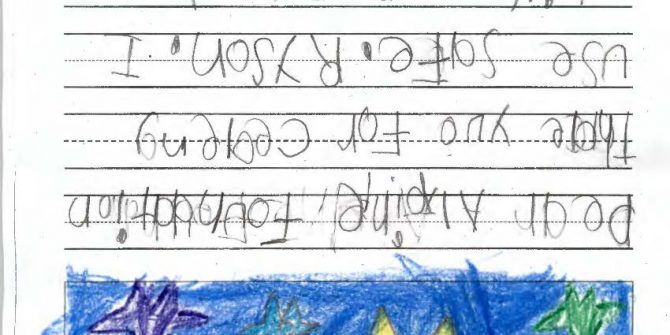 Dear Alxpine, Fotnodation
thake yuo For Ceepeng
use Safe. Ryson. I